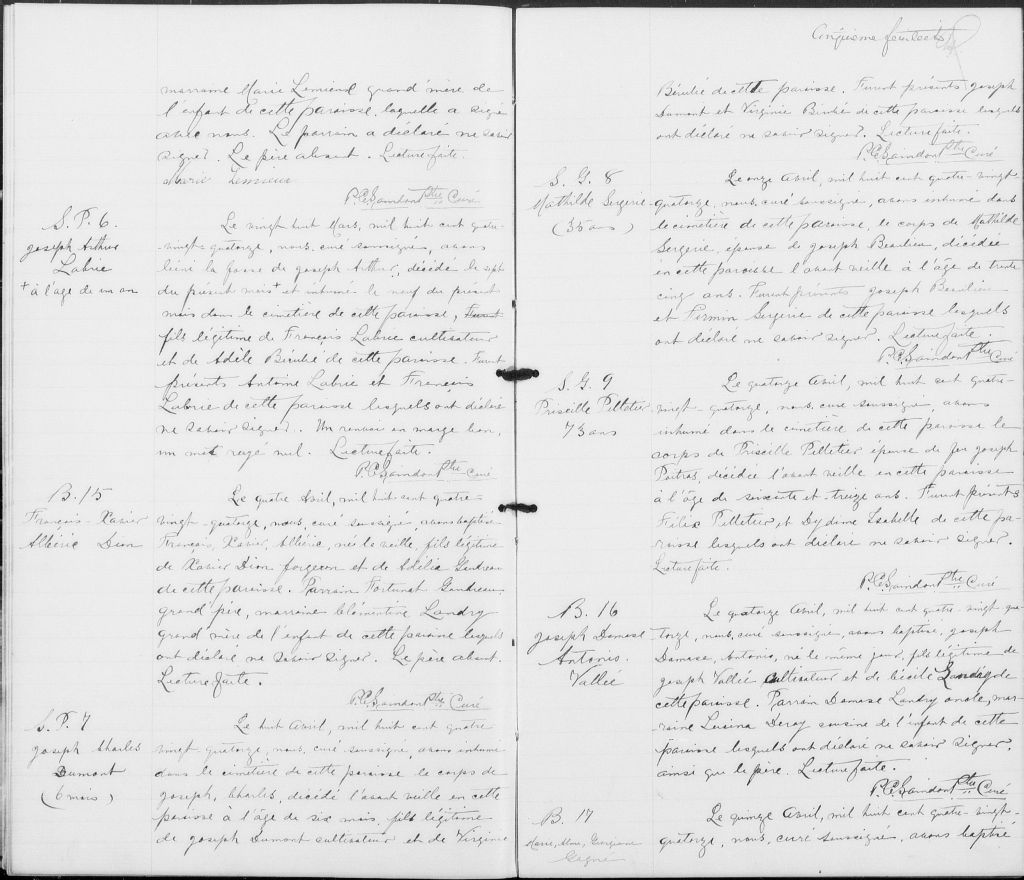 marraine Marie Lemieux grand'mère de
l'enfant de cette paroisse, laquelle a signé
avec nous. Le parrain a déclaré ne savoir
signer. Le père absent. Lecture faite.
Marie Lemieux
P.C. Saindon Ptre Curé
S. P. 6.
Joseph Arthur
Labrie
+ à l'age de un an
Le vingt huit Mars, mil huit cent quatre-
vingt-quatorze, nous, curé soussigné, avons
béni la fosse de Joseph Arthur, décédé le sept
du présent mois+ et inhumé le neuf du présent
mois dans le cimetière de cette paroisse, Furent
fils légitime de François Labrie cultivateur
et de Adèle Bérubé de cette paroisse. Furent
présents Antoine Labrie et François
Labrie de cette paroisse lesquels ont déclaré
ne savoir signer. Un renvoi en marge bon,
un mot rayé nul. Lecture faite.
P.C. Saindon Ptre Curé
B. 15
François-Xavier
Albéric Dion
Le quatre Avril, mil huit cent quatre-
vingt-quatorze, nous, curé soussigné, avons baptisé
François, Xavier, Albéric, né la veille, fils légitime
de Xavier Dion forgeron et de Adélia Gendreau
de cette paroisse. Parrain Fortunat Gendreau
grand'père, marraine Clémentine Landry
grand'mère de l'enfant de cette paroisse lesquels
ont déclaré ne savoir signer. Le père absent.
Lecture faite.
P.C. Saindon Ptre Curé
S. P. 7
Joseph Charles
Dumont
(6 mois)
Le huit Avril, mil huit cent quatre
vingt quatorze, nous, curé soussigné, avons inhumé
dans le cimetière de cette paroisse le corps de
Joseph, Charles, décédé l'avant veille en cette
paroisse à l'âge de six mois, fils légitime
de Joseph Dumont cultivateur et de Virginie
Cinquième feuillet
Bérubé de cette paroisse. Furent présents Joseph
Dumont et Virginie Bérubé de cette paroisse lesquels
ont déclaré ne savoir signer. Lecture faite.
P.C. Saindon Ptre Curé
S. G. 8
Mathilde Sergerie
(35 ans)
Le onze Avril, mil huit cent quatre-vingt
quatorze, nous, curé soussigné, avons inhumé dans
le cimetière de cette paroisse, le corps de Mathilde
Sergerie, épouse de Joseph Beaulieu, décédée
en cette paroisse l'avant veille à l'âge de trente
cinq ans. Furent présents Joseph Beaulieu
et Firmin Sergerie de cette paroisse lesquels
ont déclaré ne savoir signer. Lecture faite.
P.C. Saindon Ptre Curé
S. G. 9
Priscille Pelletier
73 ans
Le quatorze Avril, mil huit cent quatre-
vingt-quatorze, nous, curé soussigné, avons
inhumé dans le cimetière de cette paroisse le
corps de Priscille Pelletier épouse de feu Joseph
Poitras, décédée l'avant veille en cette paroisse
à l'âge de soixante et treize ans. Furent présents
Félix Pelletier et Dydime Isabelle de cette pa-
roisse lesquels ont déclaré ne savoir signer.
Lecture faite.
P.C. Saindon Ptre Curé
B. 16
Joseph Damase
Antonio.
Vallée
Le quatorze Avril, mil huit cent quatre-vingt-qua-
torze, nous, curé soussigné, avons baptisé, Joseph
Damase, Antonio, né le même jour, fils légitime de
Joseph Vallée cultivateur et de Cécile Landry de
cette paroisse. Parrain Damase Landry oncle, mar-
raine Lusina Deroy cousine de l'enfant de cette
paroisse lesquels ont déclaré ne savoir signer,
ainsi que le père. Lecture faite.
P.C. Saindon Ptre Curé
B. 17
Marie, Georgiana
Gagné
Le quinze Avril, mil huit cent quatre-vingt-
quatorze, nous, curé soussigné, avons baptisé